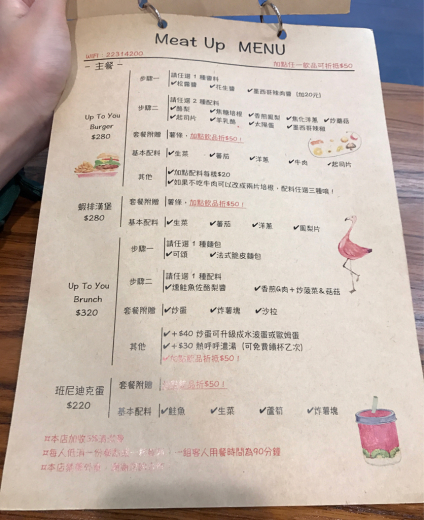 Meat Up MENU
22314200
加點任一飲品可折抵$50
- 主餐 -
Up To You
Burger
$280
步驟一
請任選 1 種醬料
✔松露醬 ✔花生醬 ✔墨西哥辣肉醬 (加20元)
步驟二
請任選 2 種配料
✔酪梨 ✔焦糖培根 ✔香煎鳳梨 ✔焦化洋蔥 ✔炒蘑菇
✔起司片 ✔羊乳酪 ✔太陽蛋 ✔墨西哥辣椒
套餐附贈
薯條，加點飲品折$50！
基本配料
✔生菜 ✔蕃茄 ✔洋蔥 ✔牛肉 ✔起司片
其他
✔加點配料每樣$20
✔如果不吃牛肉可以改成兩片培根，配料任選三種哦！
蝦排漢堡
$280
套餐附贈
薯條，加點飲品折抵$50！
基本配料
✔生菜 ✔蕃茄 ✔洋蔥 ✔鳳梨片
Up To You
Brunch
$320
步驟一
請任選 1 種麵包
✔可頌 ✔法式脆皮麵包
步驟二
請任選 1 種配料
✔燻鮭魚佐酪梨醬 ✔香煎&肉＋炒菠菜&菇菇
套餐附贈
✔炒蛋 ✔炸薯塊 ✔沙拉
其他
✔＋$40 炒蛋可升級成水波蛋或歐姆蛋
✔＋$30 熱呼呼濃湯 (可免費續杯乙次)
✔加點飲品折抵$50！
班尼迪克蛋
$220
套餐附贈
加點飲品折抵$50！
基本配料
✔鮭魚 ✔生菜 ✔蘆筍 ✔炸薯塊
#本店加收
#每人低消一份 一組客人用餐時間為90分鐘
#本店